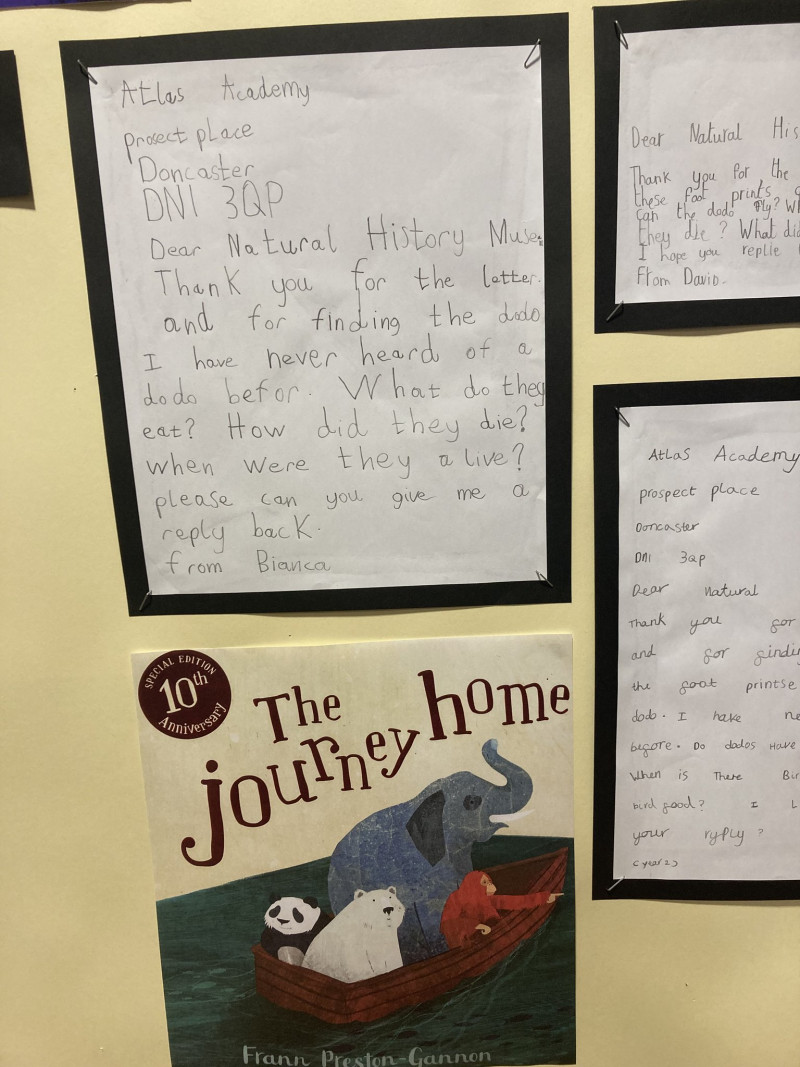 Atlas Academy
prosect place
Doncaster
DN1 3QP
Dear Natural History
Thank you for the letter.
and for finding the dodo
I have never heard of a
dodo befor. What do they
eat? How did they die?
when were they alive?
please can you give me a
reply back.
from Bianca
Dear Natural
Thank you for the
these foot prints
can the dodo fly?
they die? What did
I hope you replie
From David.
Atlas Academy
prospect place
Doncaster
DN1 3QP
Dear Natural
Thank you for
and for
the foot printse
dodo. I have
before. Do dodos Have
When is There
bird food? I
your ryply?
(year 2)
SPECIAL EDITION
10th
Anniversary
The
journey home
Frann Preston-Gannon